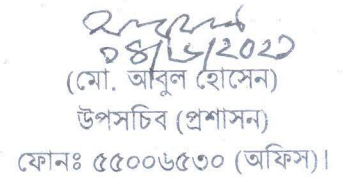 ০৪/৮/২০২১
(মো. আবুল হোসেন)
উপসচিব (প্রশাসন)
ফোনঃ ৫৫০০৬৫৩০ (অফিস)।